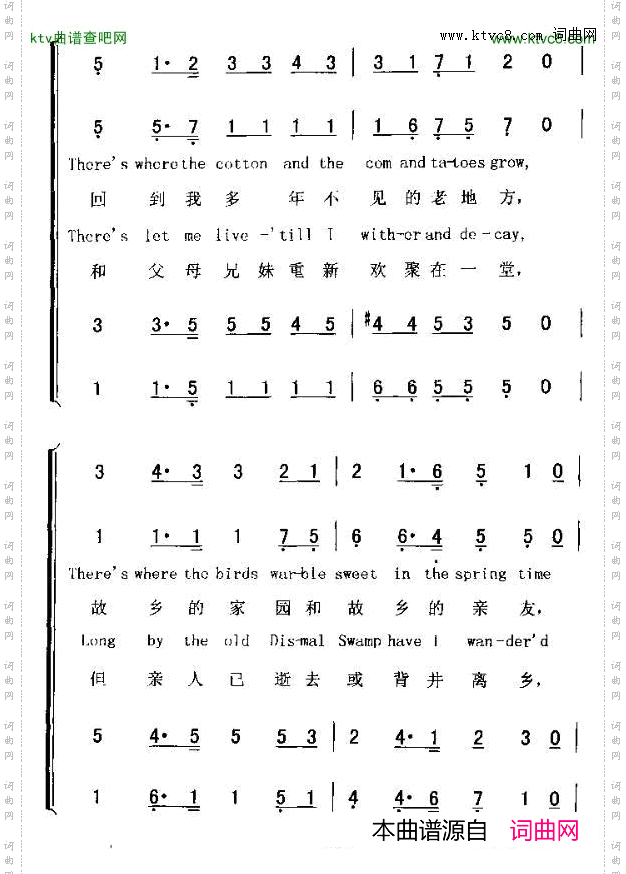 ktv曲谱查吧网
www.ktvc8.com 词曲网
www.ktvc8.com
5 1· 2 3 3 4 3 | 3 1 7 1 2 0 |
5 5· 7 1 1 1 1 | 1 6 7 5 7 0 |
There's where the cotton and the com and ta-toes grow,
回 到 我 多 年 不 见 的 老 地 方,
There's let me live -'till I with-er and de-cay,
和 父 母 兄 妹 重 新 欢 聚 在 一 堂,
3 3· 5 5 5 4 5 | #4 4 5 3 5 0 |
1 1· 5 1 1 1 1 | 6 6 5 5 5 0 |
3 4· 3 3 2 1 | 2 1· 6 5 1 0 |
1 1· 1 1 7 5 | 6 6· 4 5 5 0 |
There's where the birds war-ble sweet in the spring time
故 乡 的 家 园 和 故 乡 的 亲 友,
Long by the old Dis-mal Swamp have I wan-der'd
但 亲 人 已 逝 去 或 背 井 离 乡,
5 4· 5 5 5 3 | 2 4· 1 2 3 0 |
1 6· 1 1 5 1 | 4 4· 6 7 1 0 |
本曲谱源自 词曲网